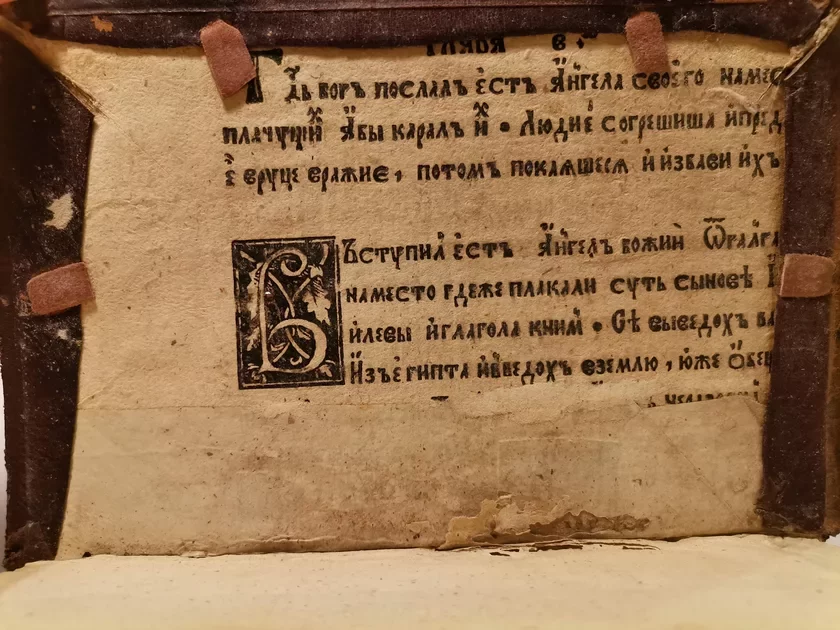 Глава в҃:
Гдѣ богъ послалъ е́стъ а҆́нгела своего намес
плачущиⷯ абы каралъ иⷯ • Людие согрешиша ипред
е вруце вражие, потомъ покаѧшесѧ и избави ихъ
Въступил естъ а҆́нгелъ божии Ѿгалга
наместо гдеже плакали суть сынове
илевы иглагола кним • Се выведохъ ва
Изъегипта ивведохъ вземлю, юже обещ